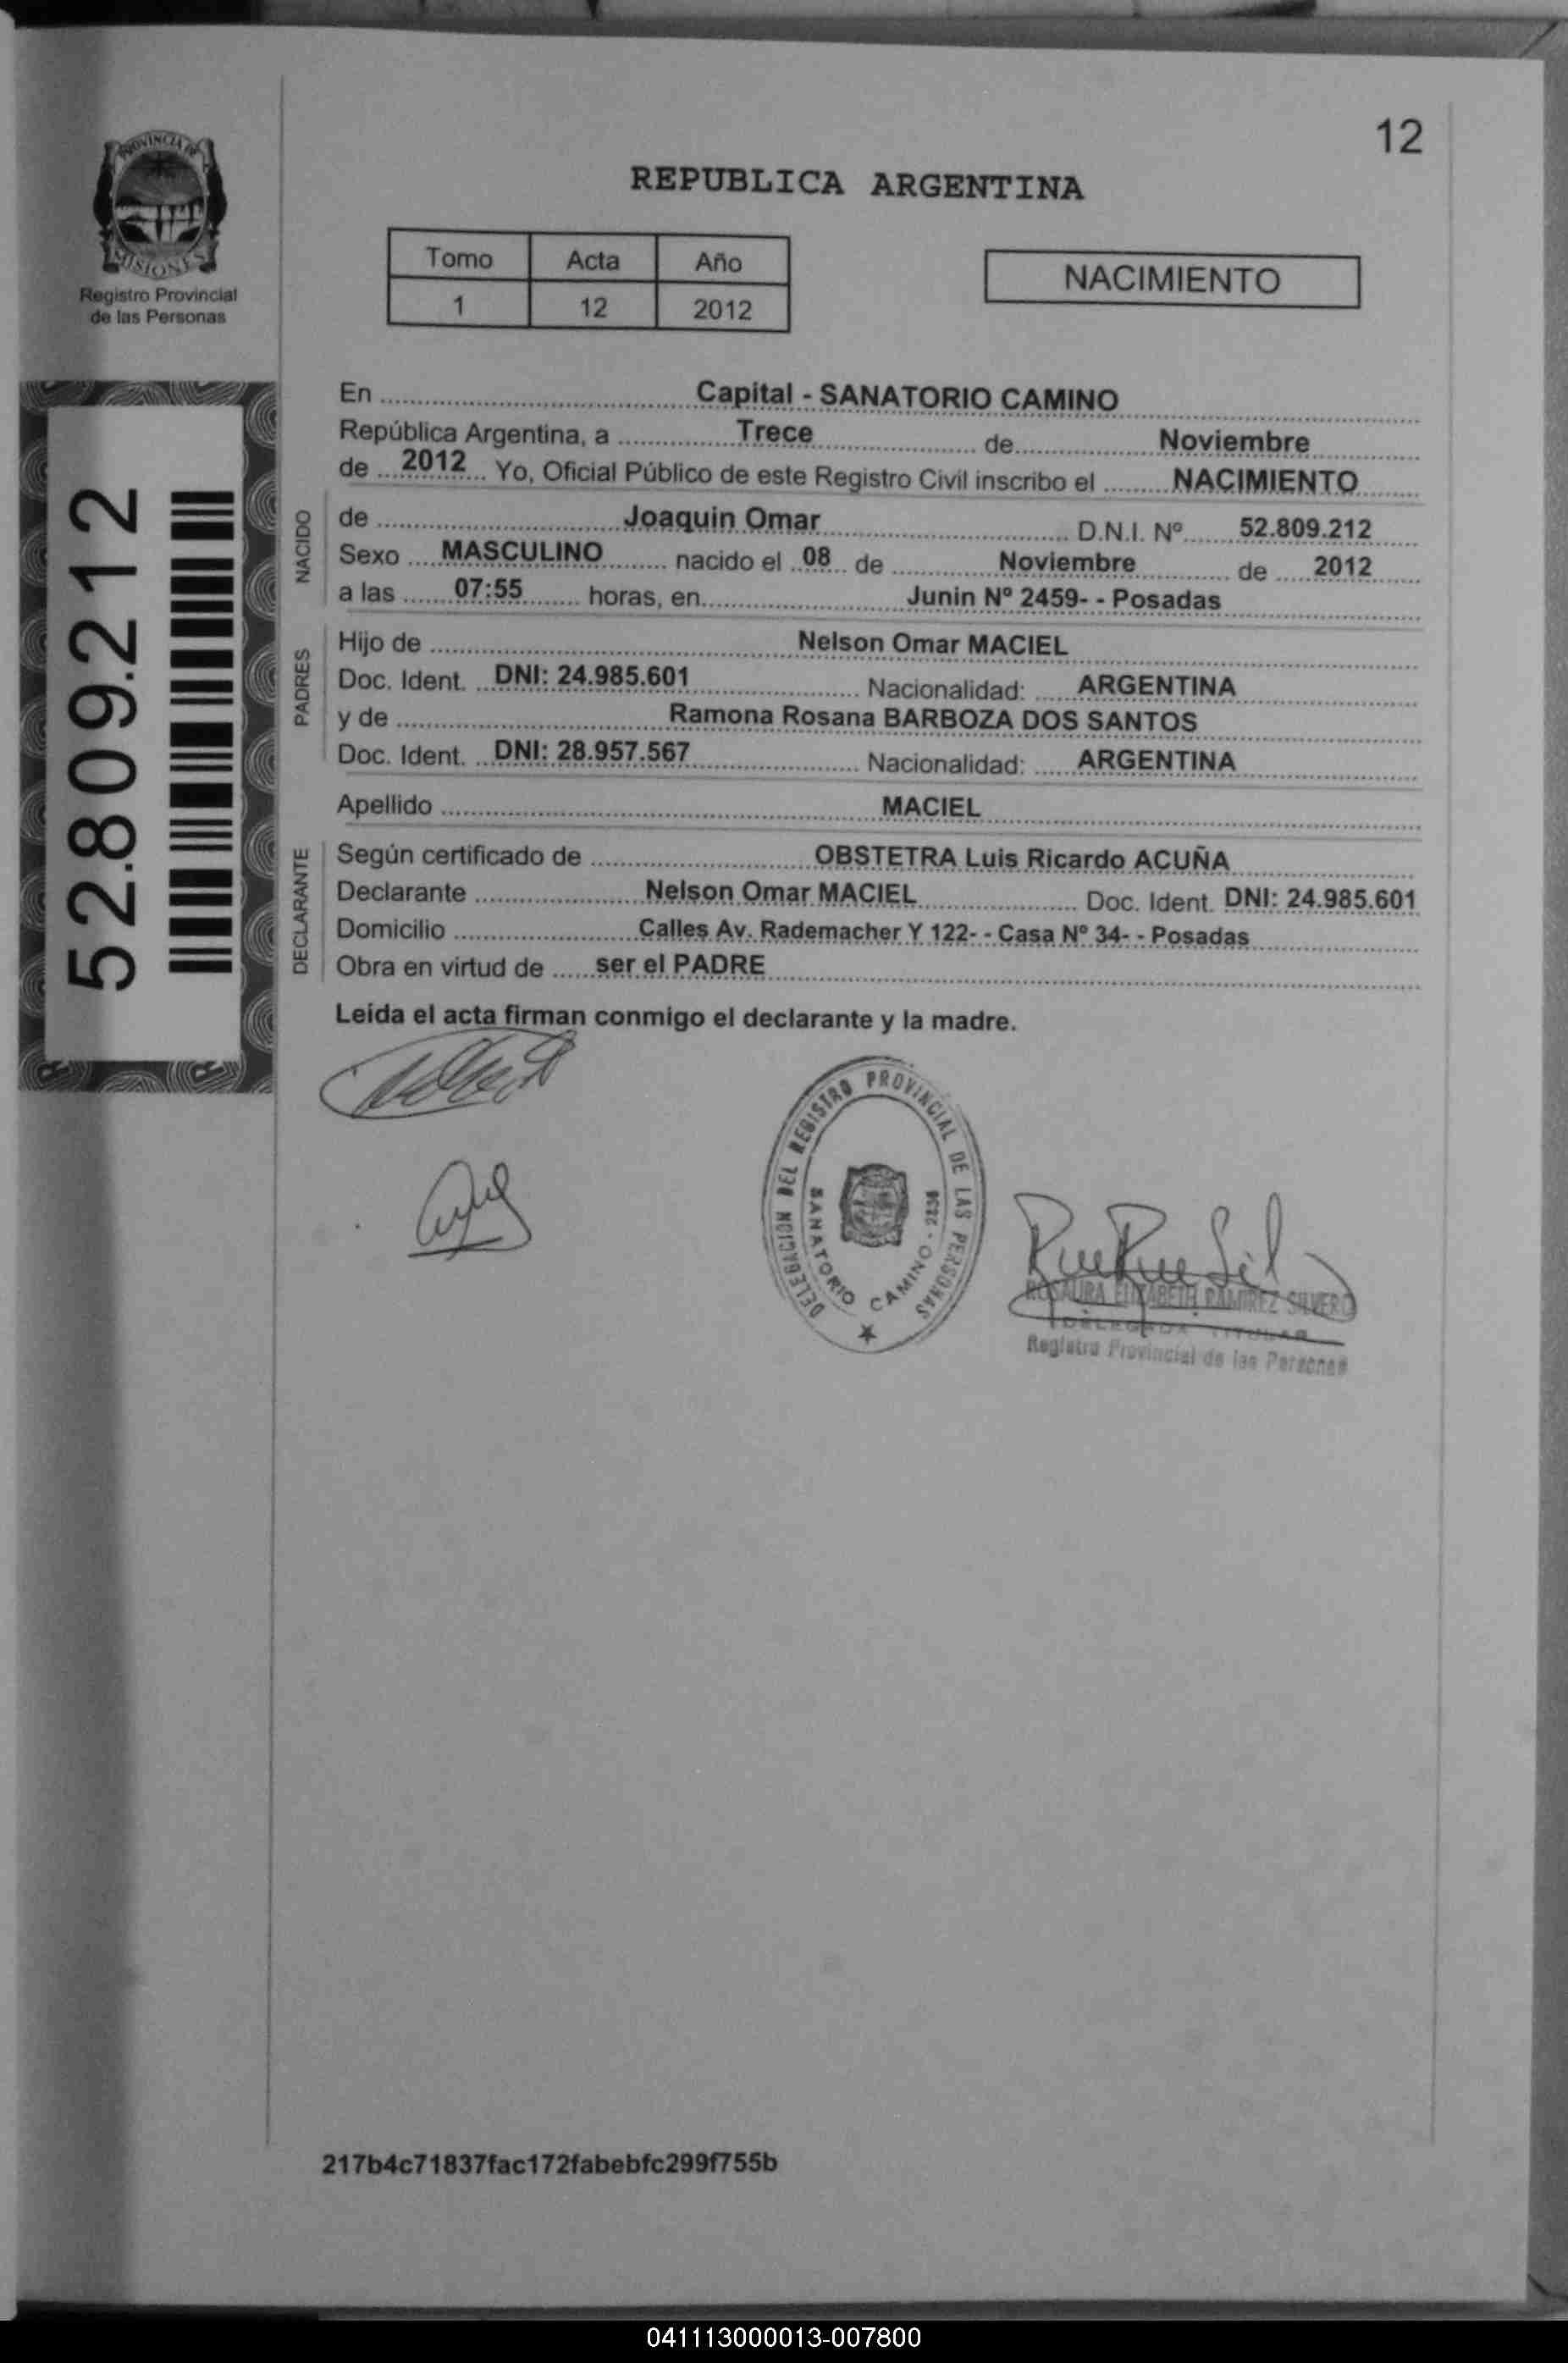 12
PROVINCIA DE
MISIONES
Registro Provincial
de las Personas
REPUBLICA ARGENTINA
Tomo Acta Año
1 12 2012
NACIMIENTO
52.809.212
En Capital - SANATORIO CAMINO
República Argentina, a Trece de Noviembre
de 2012 Yo, Oficial Público de este Registro Civil inscribo el NACIMIENTO
NACIDO
de Joaquin Omar D.N.I. Nº 52.809.212
Sexo MASCULINO nacido el 08 de Noviembre de 2012
a las 07:55 horas, en Junin Nº 2459- - Posadas
PADRES
Hijo de Nelson Omar MACIEL
Doc. Ident. DNI: 24.985.601 Nacionalidad: ARGENTINA
y de Ramona Rosana BARBOZA DOS SANTOS
Doc. Ident. DNI: 28.957.567 Nacionalidad: ARGENTINA
Apellido MACIEL
DECLARANTE
Según certificado de OBSTETRA Luis Ricardo ACUÑA
Declarante Nelson Omar MACIEL Doc. Ident. DNI: 24.985.601
Domicilio Calles Av. Rademacher Y 122- - Casa Nº 34- - Posadas
Obra en virtud de ser el PADRE
Leida el acta firman conmigo el declarante y la madre.
DELEGACION DEL REGISTRO PROVINCIAL DE LAS PERSONAS
SANATORIO CAMINO
ROSAURA ELIZABETH RAMIREZ SILVERO
DELEGADA TITULAR
Registro Provincial de las Personas
217b4c71837fac172fabebfc299f755b
041113000013-007800